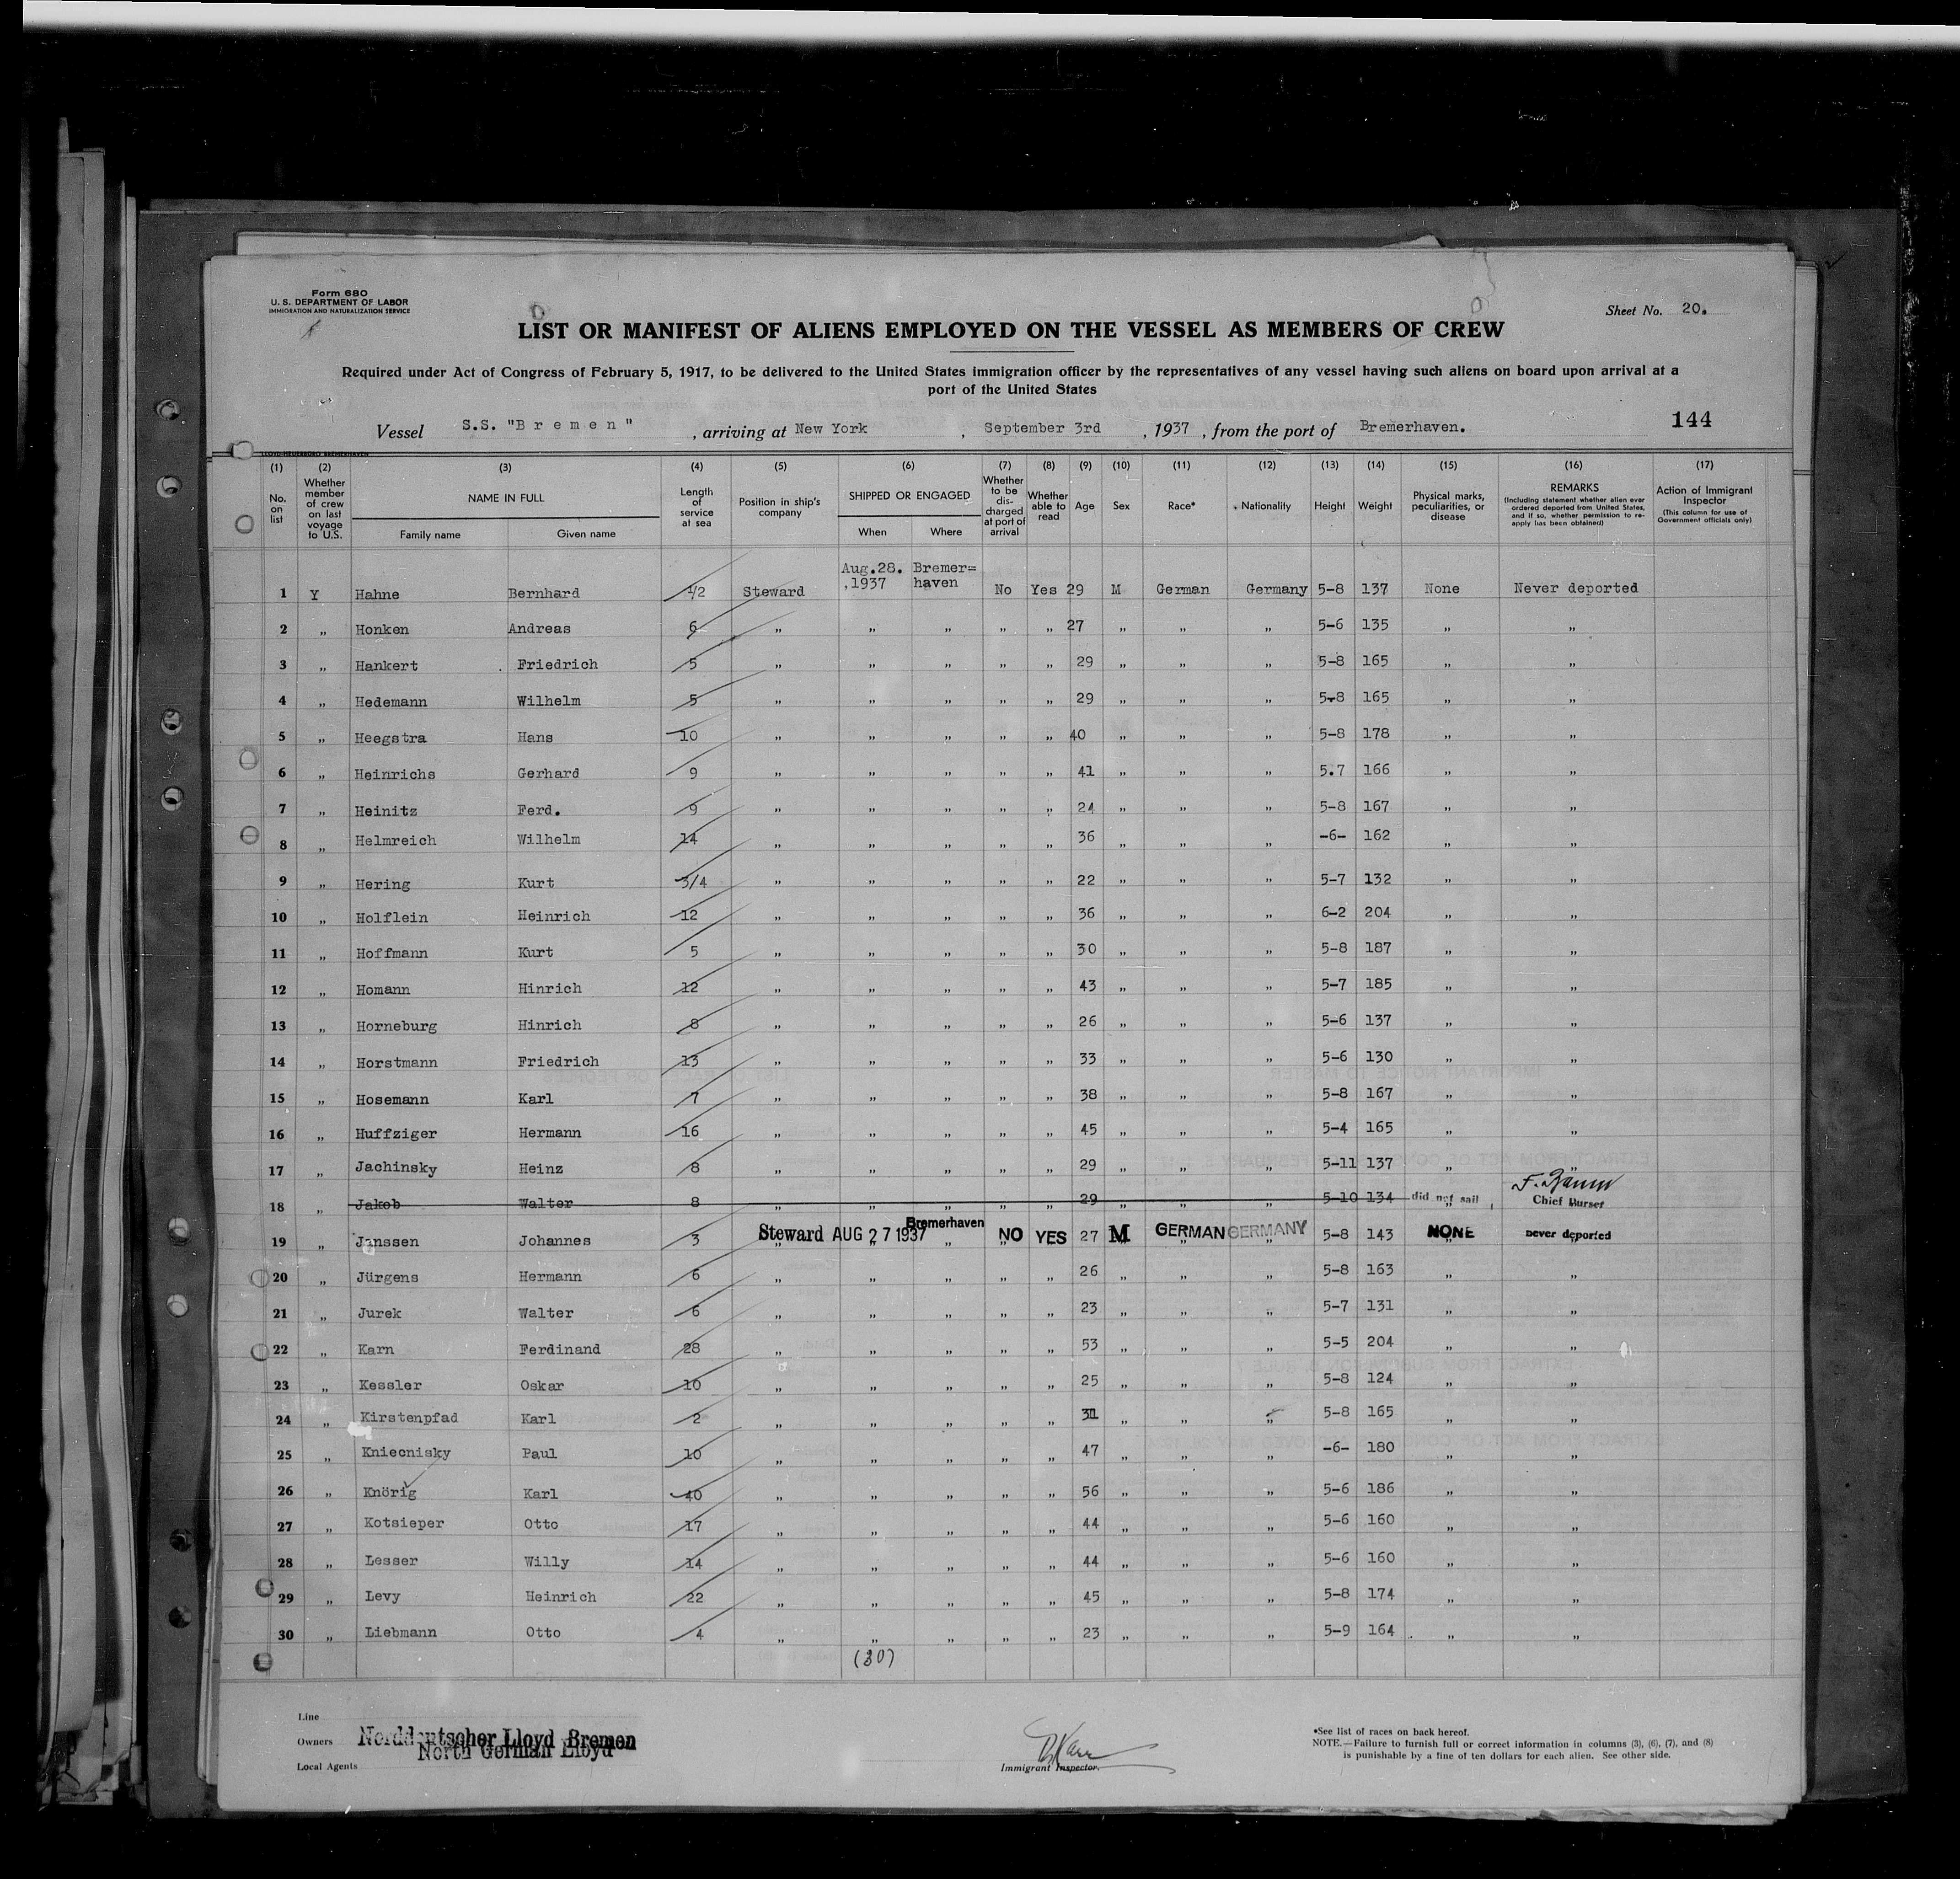 Form 680
U. S. DEPARTMENT OF LABOR
IMMIGRATION AND NATURALIZATION SERVICE
Sheet No. 20.
LIST OR MANIFEST OF ALIENS EMPLOYED ON THE VESSEL AS MEMBERS OF CREW
Required under Act of Congress of February 5, 1917, to be delivered to the United States immigration officer by the representatives of any vessel having such aliens on board upon arrival at a
port of the United States
144
Vessel S.S. "Bremen" , arriving at New York , September 3rd , 1937 , from the port of Bremerhaven.
(1) (2) (3) (4) (5) (6) (7) (8) (9) (10) (11) (12) (13) (14) (15) (16) (17)
No. on list Whether member of crew on last voyage to U.S. NAME IN FULL Family name Given name Length of service at sea Position in ship's company SHIPPED OR ENGAGED When Where Whether to be discharged at port of arrival Whether able to read Age Sex Race* Nationality Height Weight Physical marks, peculiarities, or disease REMARKS (Including statement whether alien ever ordered deported from United States, and if so, whether permission to reapply has been obtained) Action of Immigrant Inspector (This column for use of Government officials only)
1 Y Hahne Bernhard 1/2 Steward Aug.28. ,1937 Bremer= haven No Yes 29 M German Germany 5-8 137 None Never deported
2 „ Honken Andreas 6 „ „ „ „ „ 27 „ „ „ 5-6 135 „ „
3 „ Hankert Friedrich 5 „ „ „ „ „ 29 „ „ „ 5-8 165 „ „
4 „ Hedemann Wilhelm 5 „ „ „ „ „ 29 „ „ „ 5-8 165 „ „
5 „ Heegstra Hans 10 „ „ „ „ „ 40 „ „ „ 5-8 178 „ „
6 „ Heinrichs Gerhard 9 „ „ „ „ „ 41 „ „ „ 5.7 166 „ „
7 „ Heinitz Ferd. 9 „ „ „ „ „ 24 „ „ „ 5-8 167 „ „
8 „ Helmreich Wilhelm 14 „ „ „ „ „ 36 „ „ „ -6- 162 „ „
9 „ Hering Kurt 3/4 „ „ „ „ „ 22 „ „ „ 5-7 132 „ „
10 „ Holflein Heinrich 12 „ „ „ „ „ 36 „ „ „ 6-2 204 „ „
11 „ Hoffmann Kurt 5 „ „ „ „ „ 30 „ „ „ 5-8 187 „ „
12 „ Homann Hinrich 12 „ „ „ „ „ 43 „ „ „ 5-7 185 „ „
13 „ Horneburg Hinrich 8 „ „ „ „ „ 26 „ „ „ 5-6 137 „ „
14 „ Horstmann Friedrich 13 „ „ „ „ „ 33 „ „ „ 5-6 130 „ „
15 „ Hosemann Karl 7 „ „ „ „ „ 38 „ „ „ 5-8 167 „ „
16 „ Huffziger Hermann 16 „ „ „ „ „ 45 „ „ „ 5-4 165 „ „
17 „ Jachinsky Heinz 8 „ „ „ „ „ 29 „ „ „ 5-11 137 „ „
18 „ Jakob Walter 8 „ „ „ „ „ 29 „ „ „ 5-10 134 did not sail Chief Purser
19 „ Janssen Johannes 3 Steward AUG 27 1937 Bremerhaven NO YES 27 M GERMAN GERMANY 5-8 143 NONE never deported
20 „ Jürgens Hermann 6 „ „ „ „ „ 26 „ „ „ 5-8 163 „ „
21 „ Jurek Walter 6 „ „ „ „ „ 23 „ „ „ 5-7 131 „ „
22 „ Karn Ferdinand 28 „ „ „ „ „ 53 „ „ „ 5-5 204 „ „
23 „ Kessler Oskar 10 „ „ „ „ „ 25 „ „ „ 5-8 124 „ „
24 „ Kirstenpfad Karl 2 „ „ „ „ „ 31 „ „ „ 5-8 165 „ „
25 „ Kniecnisky Paul 10 „ „ „ „ „ 47 „ „ „ -6- 180 „ „
26 „ Knörig Karl 40 „ „ „ „ „ 56 „ „ „ 5-6 186 „ „
27 „ Kotsieper Otto 17 „ „ „ „ „ 44 „ „ „ 5-6 160 „ „
28 „ Lesser Willy 14 „ „ „ „ „ 44 „ „ „ 5-6 160 „ „
29 „ Levy Heinrich 22 „ „ „ „ „ 45 „ „ „ 5-8 174 „ „
30 „ Liebmann Otto 4 „ „ „ „ „ 23 „ „ „ 5-9 164 „ „
(30)
Line
Owners Norddeutscher Lloyd Bremen
North German Lloyd
Local Agents
Immigrant Inspector.
*See list of races on back hereof.
NOTE.—Failure to furnish full or correct information in columns (3), (6), (7), and (8)
is punishable by a fine of ten dollars for each alien. See other side.